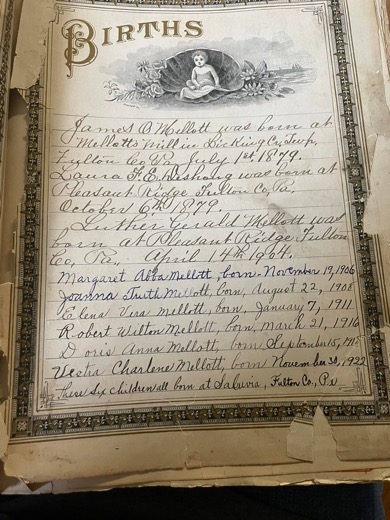 BIRTHS
James B Mellott was born at
Mellotts Mill in Licking Cr. Twp,
Fulton Co Pa. July 1st 1879.
Laura F. E. Mishong was born at
Pleasant Ridge Fulton Co, Pa,
October 6th 1879.
Luther Gerald Mellott was
born at Pleasant Ridge Fulton
Co, Pa., April 14th 1904.
Margaret Alba Mellott, born - November 19, 1906
Joanna Truth Mellott, born, August 22, 1908
Elena Vera Mellott, born, January 7, 1911
Robert Wilton Mellott, born, March 21, 1916
Doris Anna Mellott, born September 15,
Vesta Charlene Mellott, born November 30, 1922
These Six children all born at Saluvia, Fulton Co., Pa